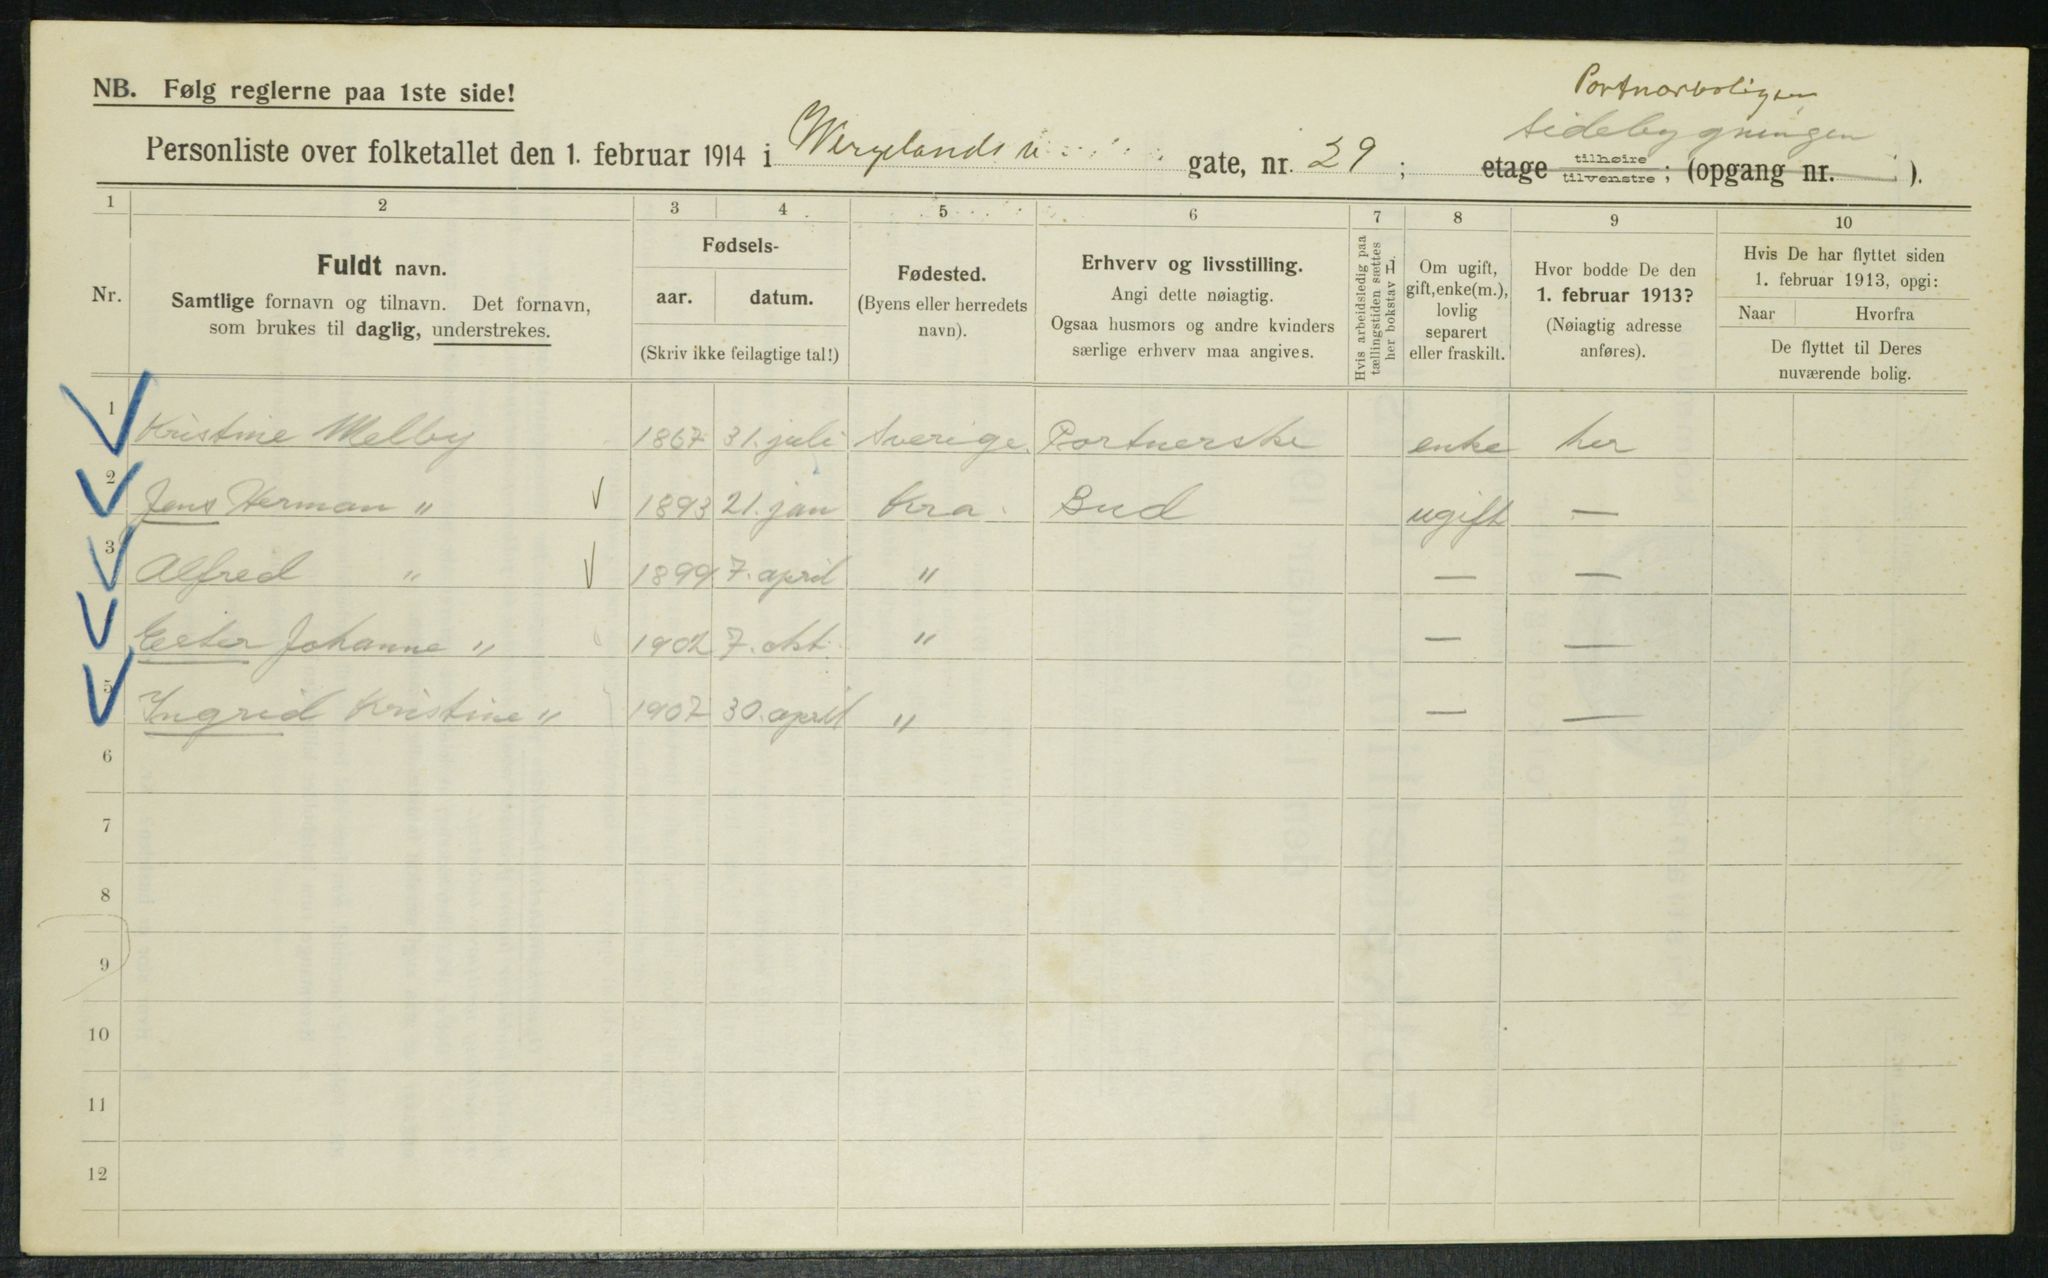 NB. Følg reglerne paa 1ste side!
Portnerboligen
Sidebygningen
Personliste over folketallet den 1. februar 1914 i Wergelands v gate, nr. 29 ; etage tilhøire tilvenstre ; (opgang nr. ).
1 2 3 4 5 6 7 8 9 10
Nr.
Fuldt navn.
Samtlige fornavn og tilnavn. Det fornavn,
som brukes til daglig, understrekes.
Fødsels-
aar. datum.
(Skriv ikke feilagtige tal!)
Fødested.
(Byens eller herredets
navn).
Erhverv og livsstilling.
Angi dette nøiagtig.
Ogsaa husmors og andre kvinders
særlige erhverv maa angives.
Hvis arbeidsledig paa
tællingstiden sættes
her bokstav
Om ugift,
gift, enke(m.),
lovlig
separert
eller fraskilt.
Hvor bodde De den
1. februar 1913?
(Nøiagtig adresse
anføres).
Hvis De har flyttet siden
1. februar 1913, opgi:
Naar Hvorfra
De flyttet til Deres
nuværende bolig.
1 Kristine Melby 1867 31. juli Sverige. Portnerske enke her
2 Jens Herman " 1893 21. jan Kra. Bud ugift —
3 Alfred " 1899 7. april " — —
Ester Johanne " 1902 7. okt. " — —
5 Ingrid Kristine " 1907 30. april " — —
6
7
8
9
10
11
12